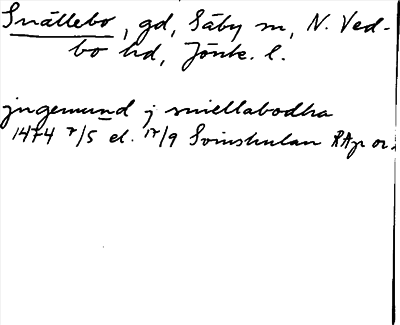 Snällebo, gd, Säby sn, N. Ved-
bo hd, Jönk. l.
jngemund j sniellabodha
1474 7/5 el. 17/9 Svinhulan RAp or.